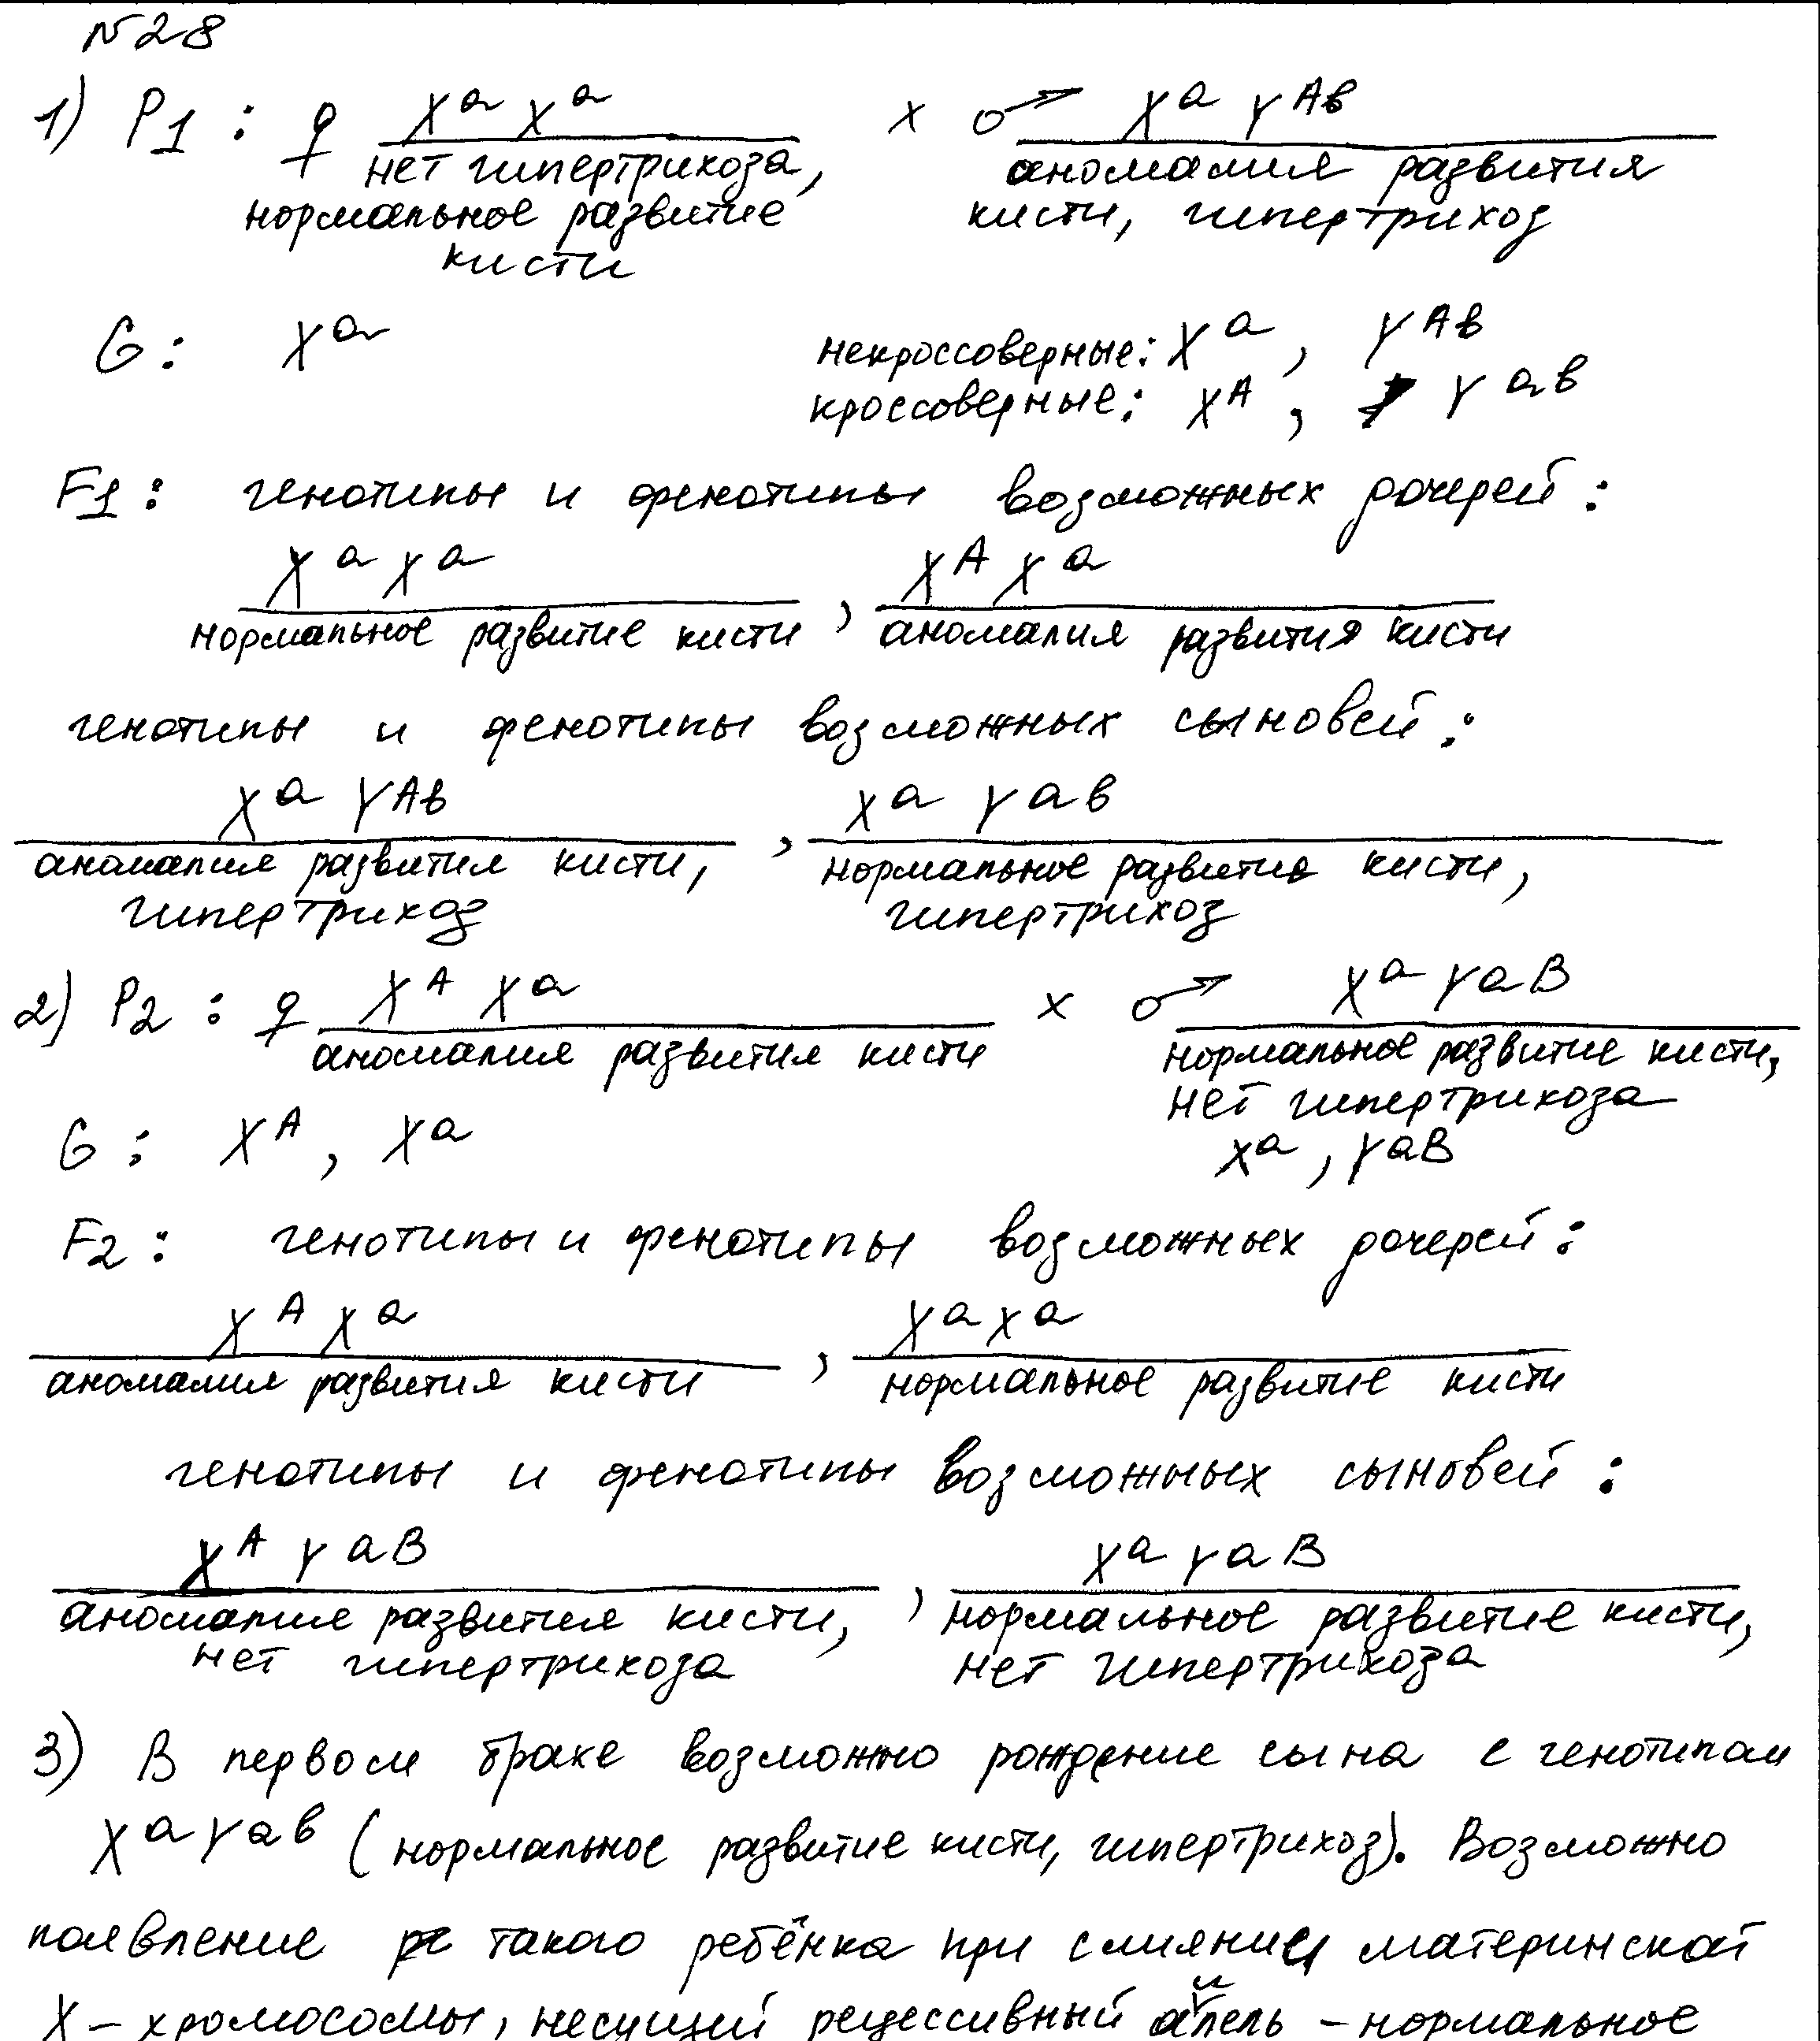 №28
1) P1 : ♀ XᵃXᵃ × ♂ Xᵃ Yᴬᵇ
нет гипертрихоза, аномалия развития
нормальное развитие кисти, гипертрихоз
кисти
G: Xᵃ некроссоверные: Xᵃ, Yᴬᵇ
кроссоверные: Xᴬ, Yᵃᵇ
F1: генотипы и фенотипы возможных дочерей:
XᵃXᵃ , XᴬXᵃ
нормальное развитие кисти аномалия развития кисти
генотипы и фенотипы возможных сыновей:
Xᵃ Yᴬᵇ , Xᵃ Yᵃᵇ
аномалия развития кисти, нормальное развитие кисти,
гипертрихоз гипертрихоз
2) P2 : ♀ Xᴬ Xᵃ × ♂ Xᵃ Yᵃᴮ
аномалия развития кисти нормальное развитие кисти,
нет гипертрихоза
G: Xᴬ, Xᵃ Xᵃ, Yᵃᴮ
F2: генотипы и фенотипы возможных дочерей:
Xᴬ Xᵃ , XᵃXᵃ
аномалия развития кисти нормальное развитие кисти
генотипы и фенотипы возможных сыновей:
Xᴬ Yᵃᴮ , Xᵃ Yᵃᴮ
аномалия развития кисти, нормальное развитие кисти,
нет гипертрихоза нет гипертрихоза
3) В первом браке возможно рождение сына с генотипом
XᵃYᵃᵇ (нормальное развитие кисти, гипертрихоз). Возможно
появление такого ребёнка при слиянии материнской
X – хромосомы, несущий рецессивный аллель – нормальное